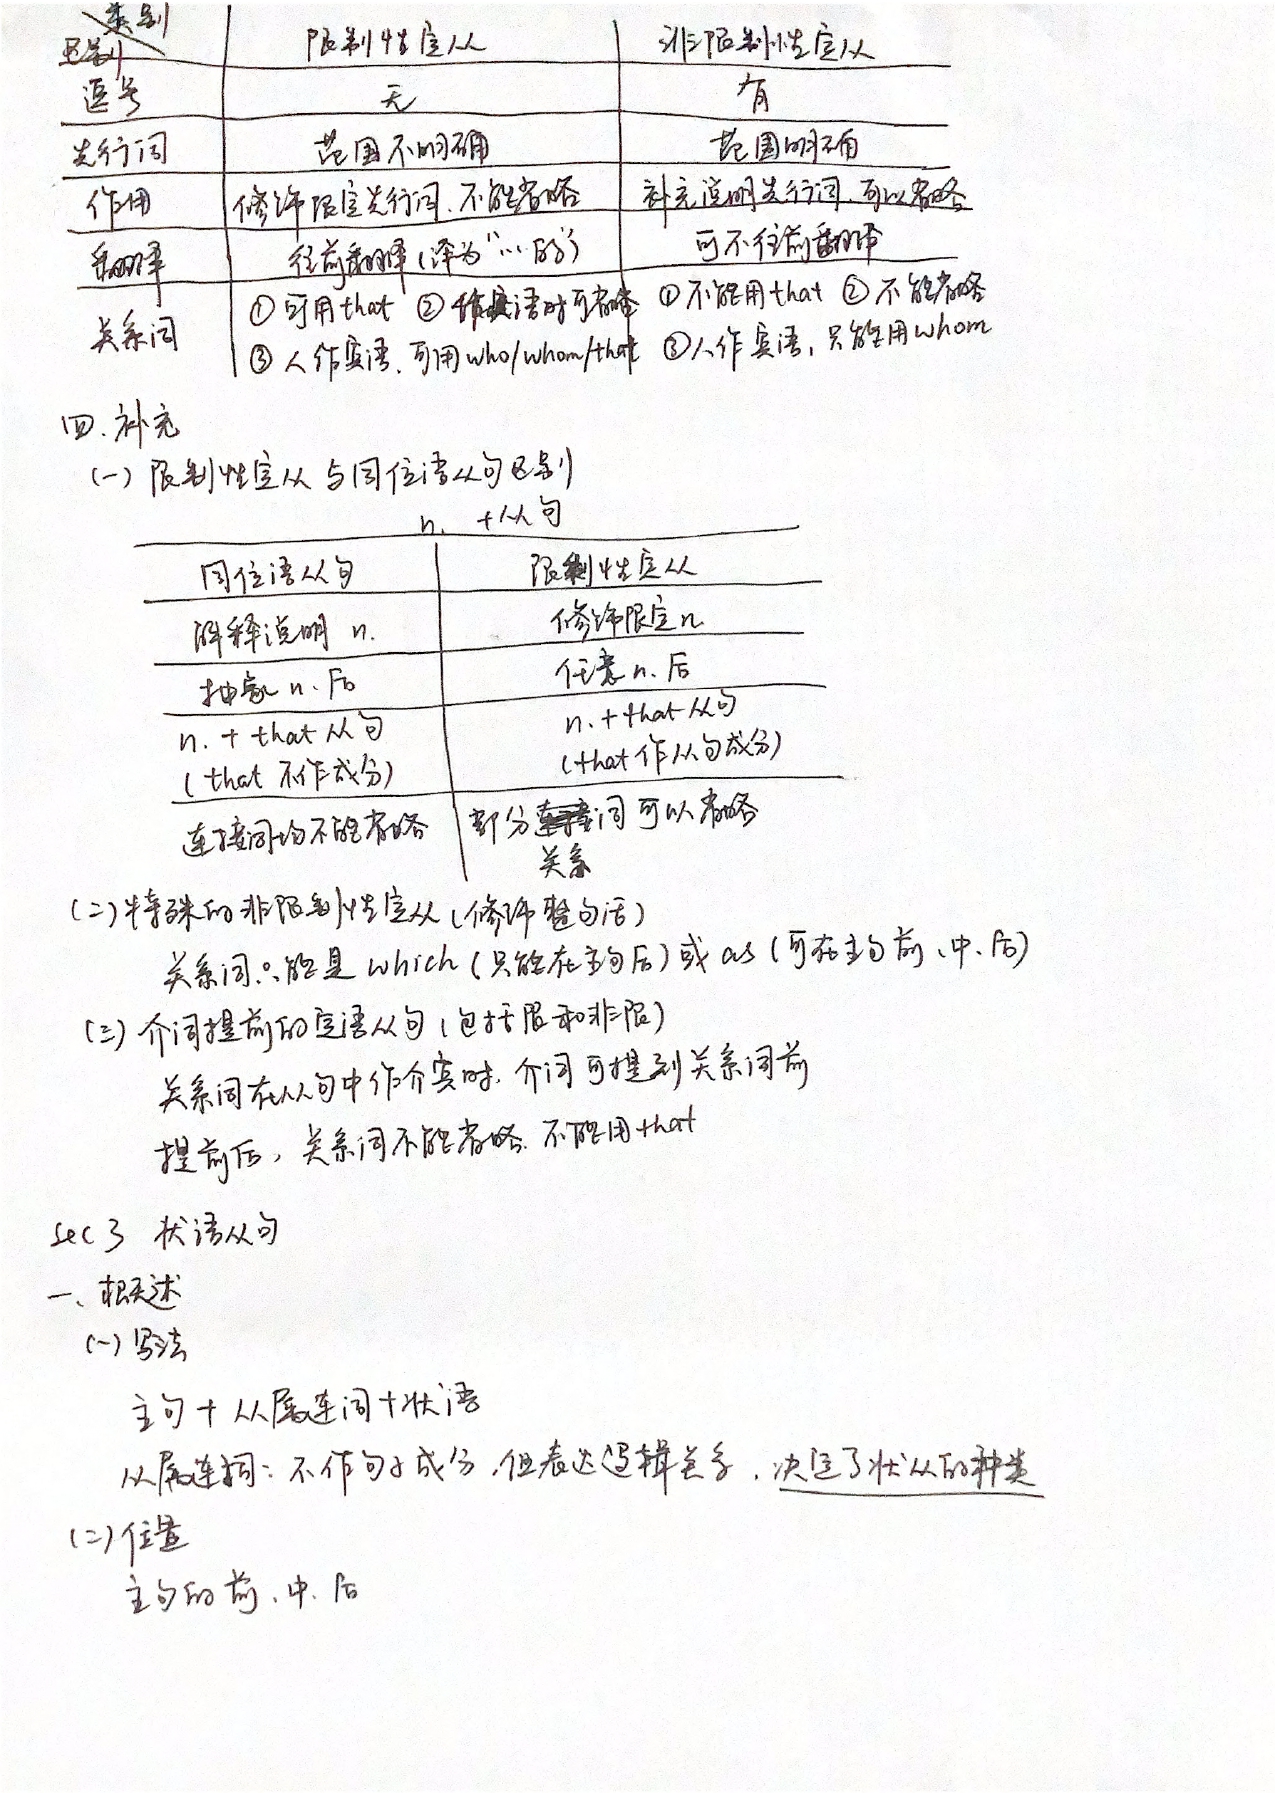 类别
区别 限制性定从 非限制性定从
逗号 无 有
先行词 范围不明确 范围明确
作用 修饰限定先行词、不能省略 补充说明先行词、可以省略
翻译 往前翻译(译为“…的”) 可不往前翻译
关系词 ①可用that ②作宾语时可省略 ①不能用that ②不能省略
③人作宾语、可用who/whom/that ③人作宾语,只能用whom
四.补充
(一)限制性定从与同位语从句区别
n. +从句
同位语从句 限制性定从
解释说明 n. 修饰限定n
抽象n.后 任意n.后
n. + that从句 n. + that从句
(that 不作成分) (that作从句成分)
连接词均不能省略 部分词可以省略
关系
(二)特殊的非限制性定从(修饰整句话)
关系词只能是which(只能在主句后)或as(可在主句前、中、后)
(三)介词提前的定语从句(包括限和非限)
关系词在从句中作介宾时,介词可提到关系词前
提前后,关系词不能省略.不能用that
sec 3 状语从句
一、概述
(一)写法
主句+从属连词+状语
从属连词:不作句子成分,但表达逻辑关系,决定了状从的种类
(二)位置
主句的前、中、后